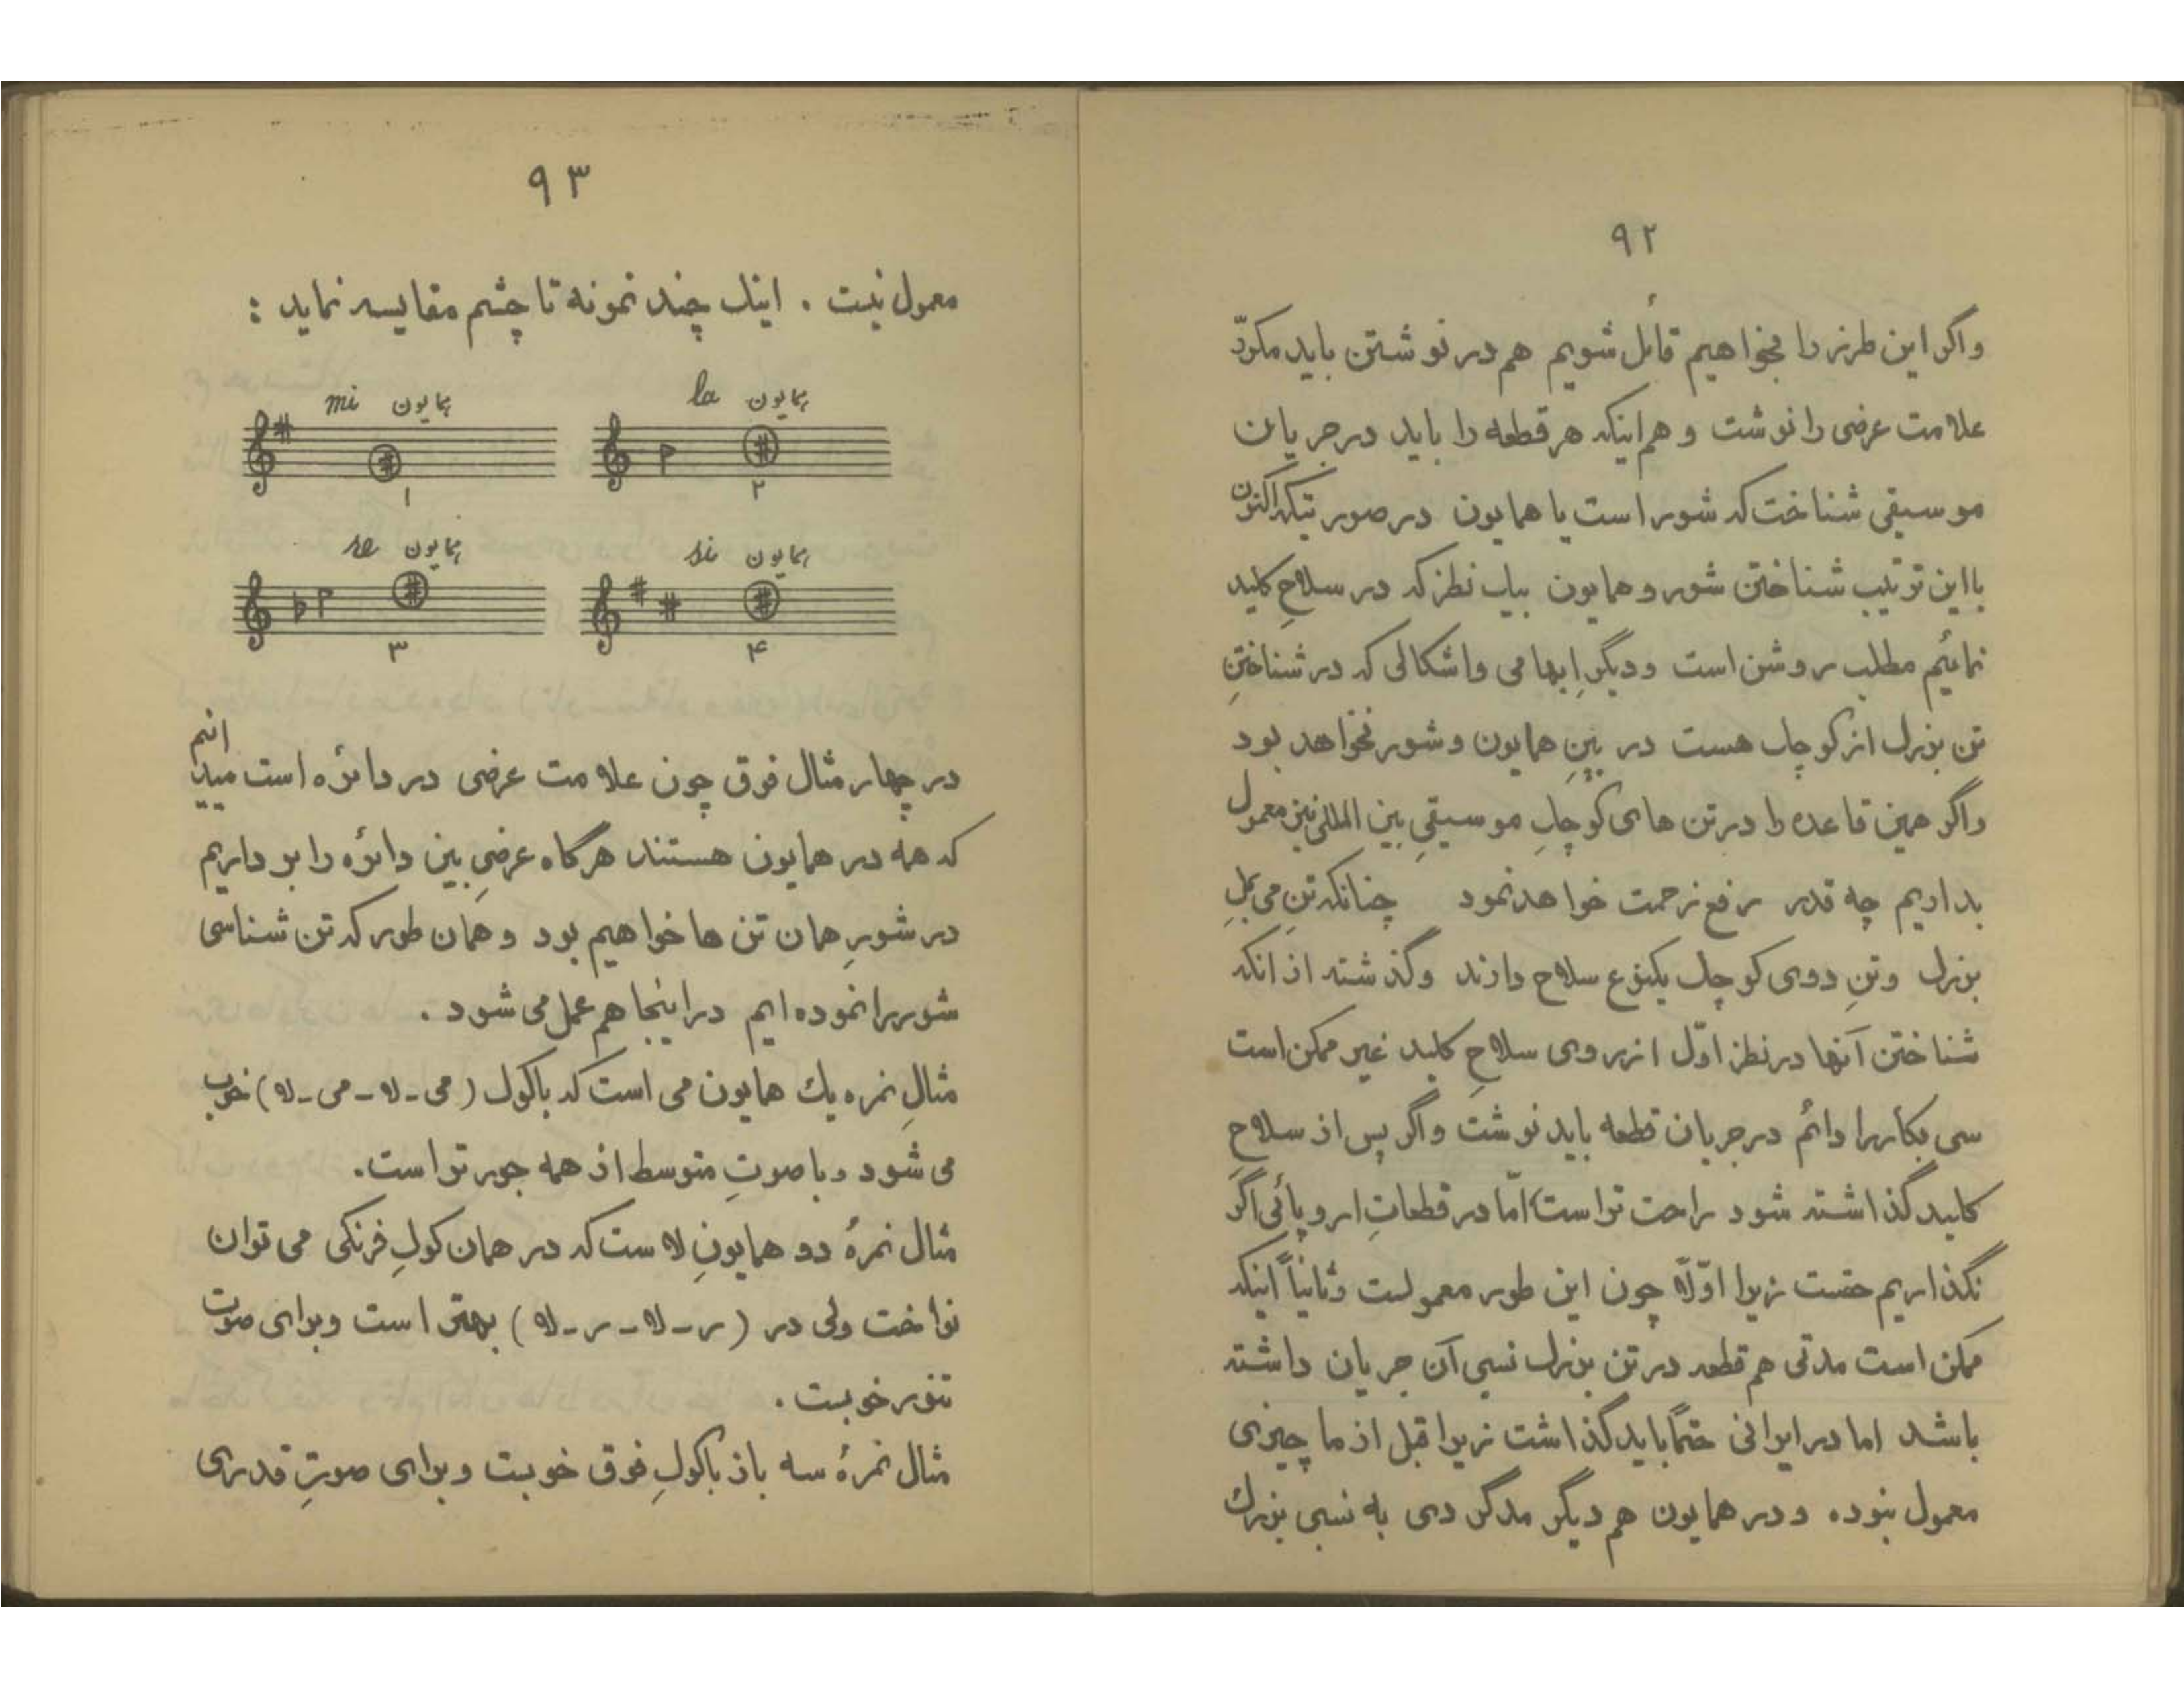 ۹۲
واگر این طرز را بخواهیم قائل شویم هم در نوشتن باید مکرّر
علامت عرضی را نوشت و هم اینکه هر قطعه را باید در جریان
موسیقی شناخت که شور است یا همایون در صورتیکه اکنون
بااین ترتیب شناختن شور و همایون بیک نظر که در سلاحِ کلید
نمائیم مطلب روشن است و دیگر اِبهامی واشکالی که در شناختنِ
تن بزرك از کوچك هست در بینِ همایون و شور نخواهد بود
واگر همین قاعده را در تن های کوچكِ موسیقیِ بین المللی نیز معمول
بداریم چه قدر رفع زحمت خواهد نمود چنانکه تنِ می بملِ
بزرك وتنِ دوی کوچك یکنوع سلاح دارند وگذشته از انکه
شناختن آنها در نظر اوّل از روی سلاحِ کلید غیر ممکن است
سی بکار را دائم در جریان قطعه باید نوشت واگر پس از سلاحِ
کلید گذاشته شود راحت تر است امّا در قطعاتِ اروپائی اگر
نگذاریم حقست زیرا اوّلاً چون این طور معمولست وثانیاً اینکه
ممکن است مدتی هم قطعه در تن بزرك نسبی آن جریان داشته
باشد اما در ایرانی حتماً باید گذاشت زیرا قبل از ما چیزی
معمول نبوده و در همایون هم دیگر مدگردی به نسبی بزرك
۹۳
معمول نیست . اینك چند نمونه تا چشم مقایسه نماید :
همایون mi
همایون la
۱
۲
همایون re
همایون si
۳
۴
در چهار مثال فوق چون علامت عرضی در دائره است میدانیم
که همه در همایون هستند هرگاه عرضیِ بین دائره را بر داریم
در شورِ همان تن ها خواهیم بود و همان طور که تن شناسی
شور را نموده ایم در اینجا هم عمل می شود .
مثالِ نمره یك همایون می است که باکول (می-لا-می-لا) خوب
می شود و با صوتِ متوسط از همه جور تر است.
مثال نمرهٔ دو همایونِ لاست که در همان کولِ فرنگی می توان
نواخت ولی در (ر-لا-ر-لا) بهتر است وبرای صوت
تنور خوبست .
مثال نمرهٔ سه باز باکولِ فوق خوبست وبرای صوتِ قدری